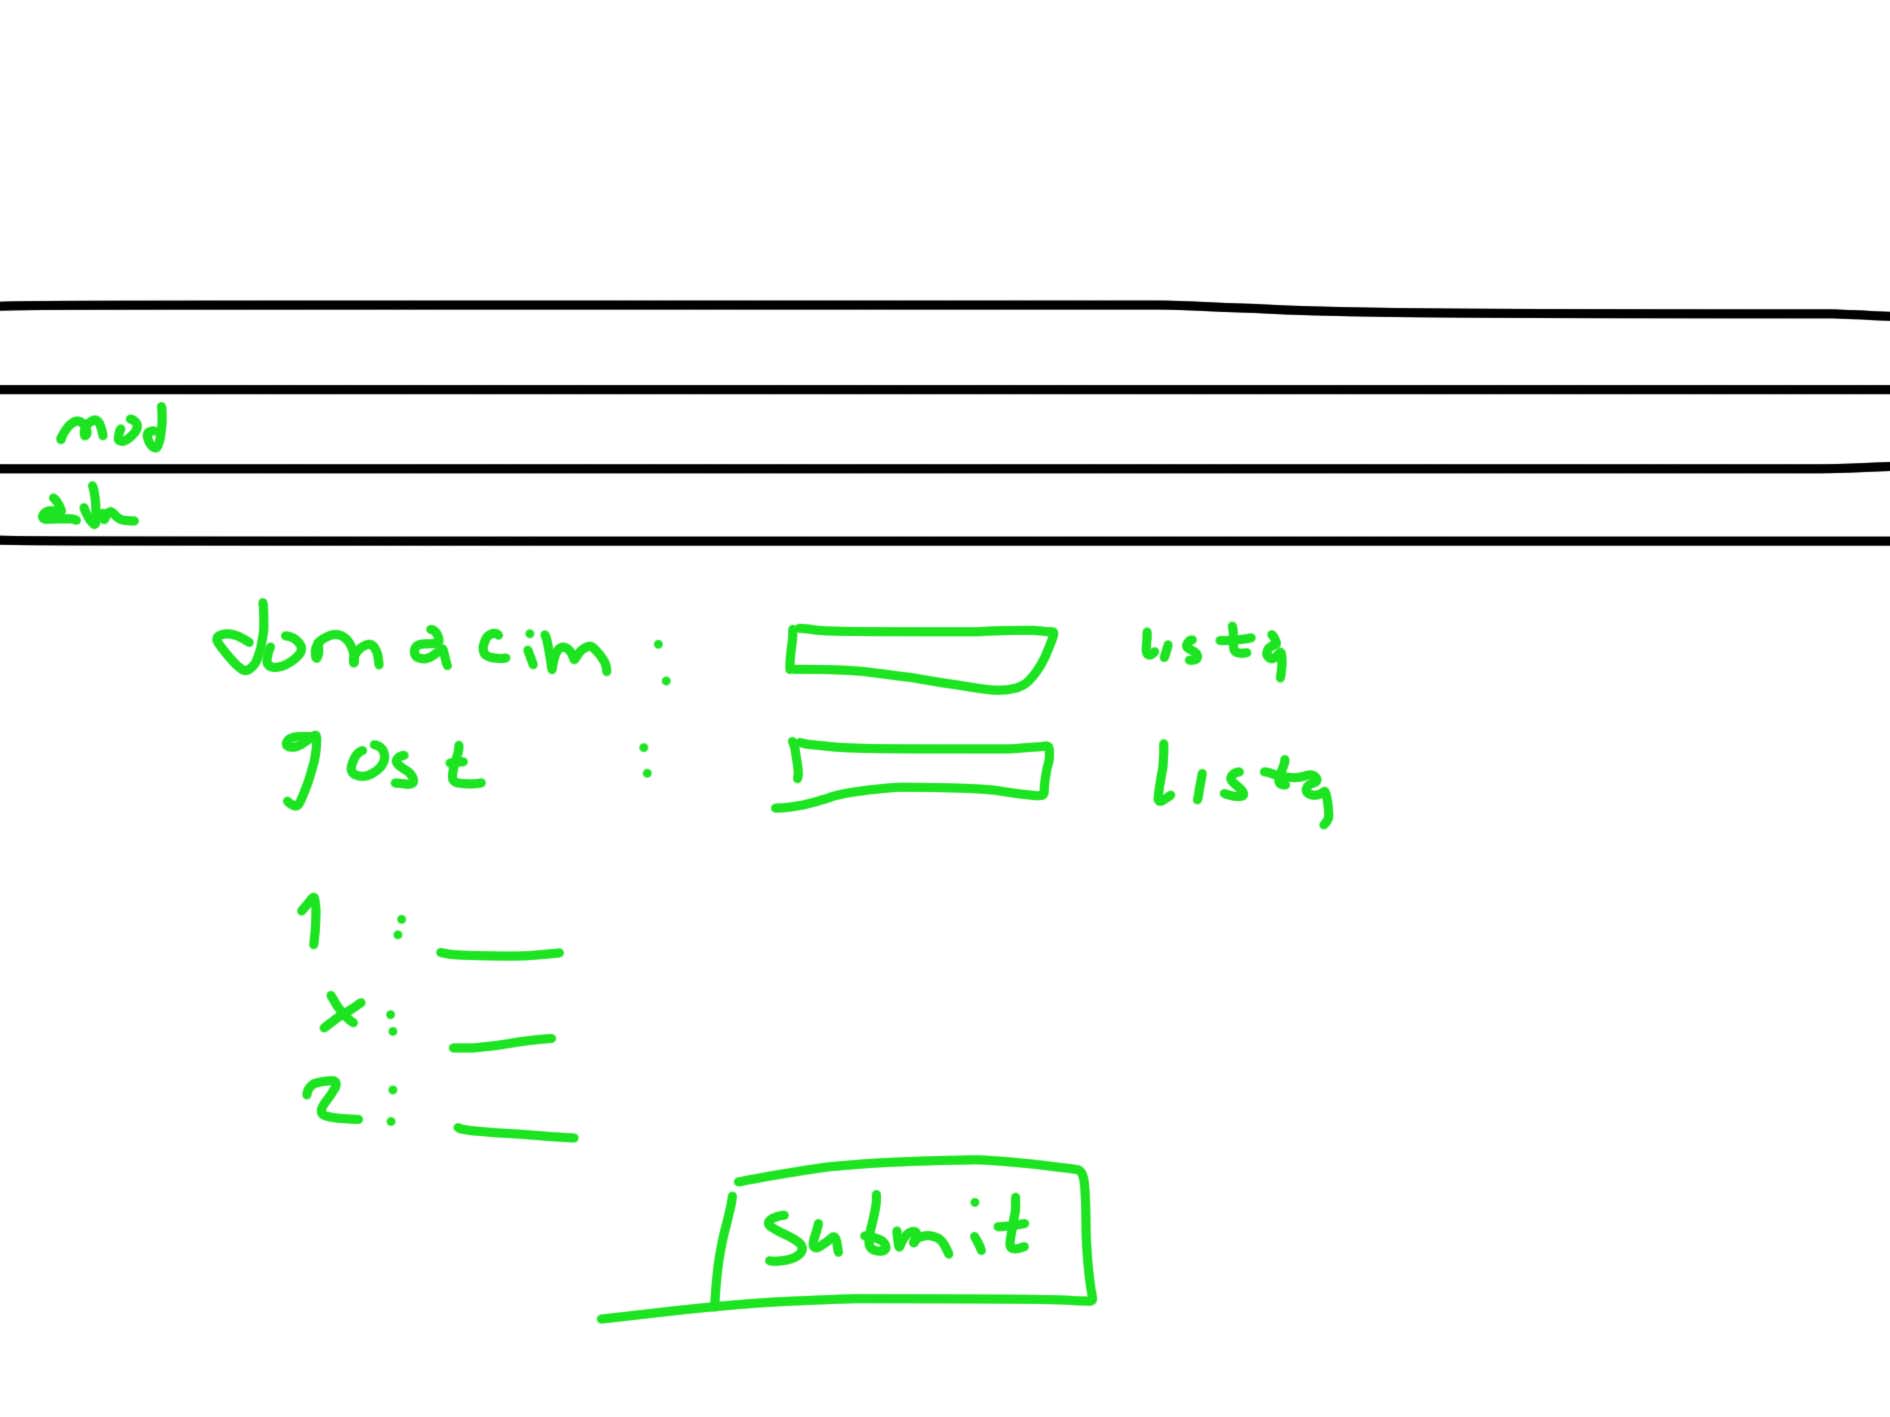 mod
domacim : lista
gost : lista
1 :
x :
2 :
submit